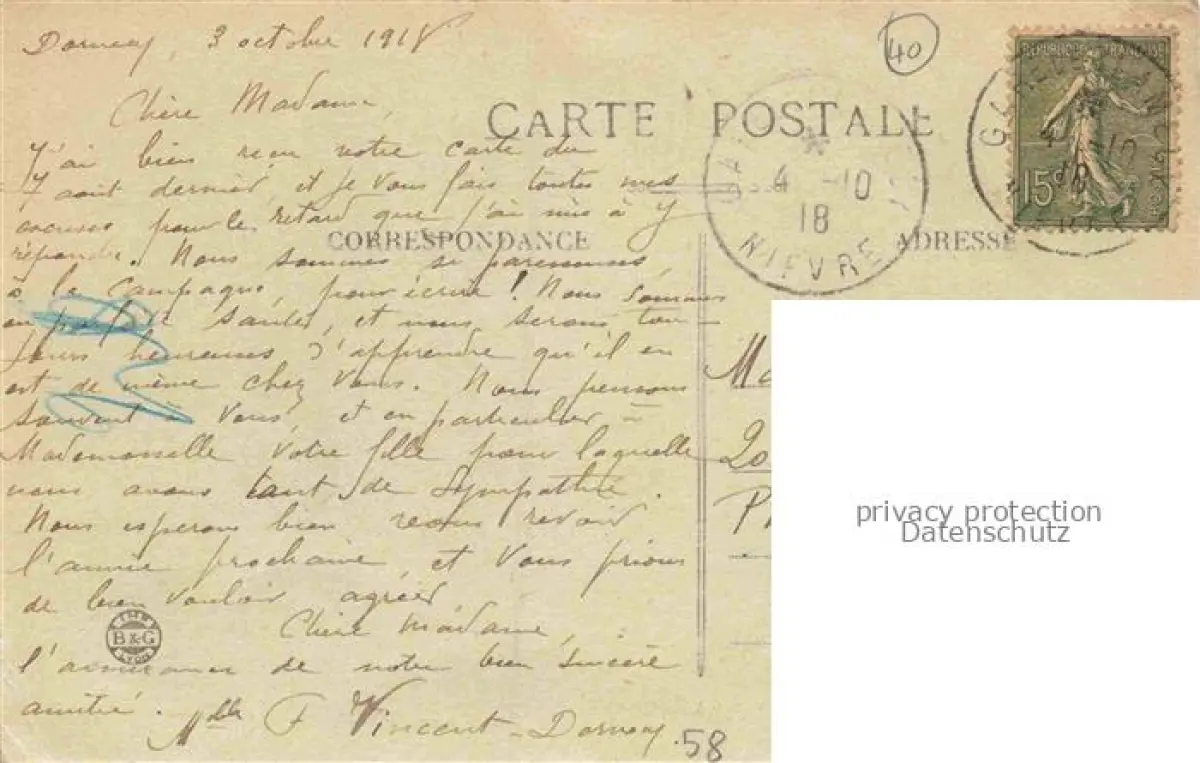 Dornecy, 3 octobre 1918
40
RÉPUBLIQUE FRANÇAISE
15c
Chère Madame,
CARTE POSTALE
4 -10
18
NIEVRE
CORRESPONDANCE
ADRESSE
J'ai bien reçu votre carte du
7 août dernier, et je vous fais toutes mes
excuses pour le retard que j'ai mis à y
répondre. Nous sommes si paresseuses
à la campagne, pour écrire! Nous sommes
en parfaite santé, et nous serons tou-
jours heureuses d'apprendre qu'il en
est de même chez vous. Nous pensons
souvent à vous, et en particulier à
Mademoiselle votre fille pour laquelle
nous avons tant de sympathie.
Nous espérons bien vous revoir
l'année prochaine, et vous prions
de bien vouloir agréer
Chère Madame,
l'assurance de notre bien sincère
amitié.
Mlle F Vincent - Dornecy
58
IMP
B & G
LYON
privacy protection
Datenschutz